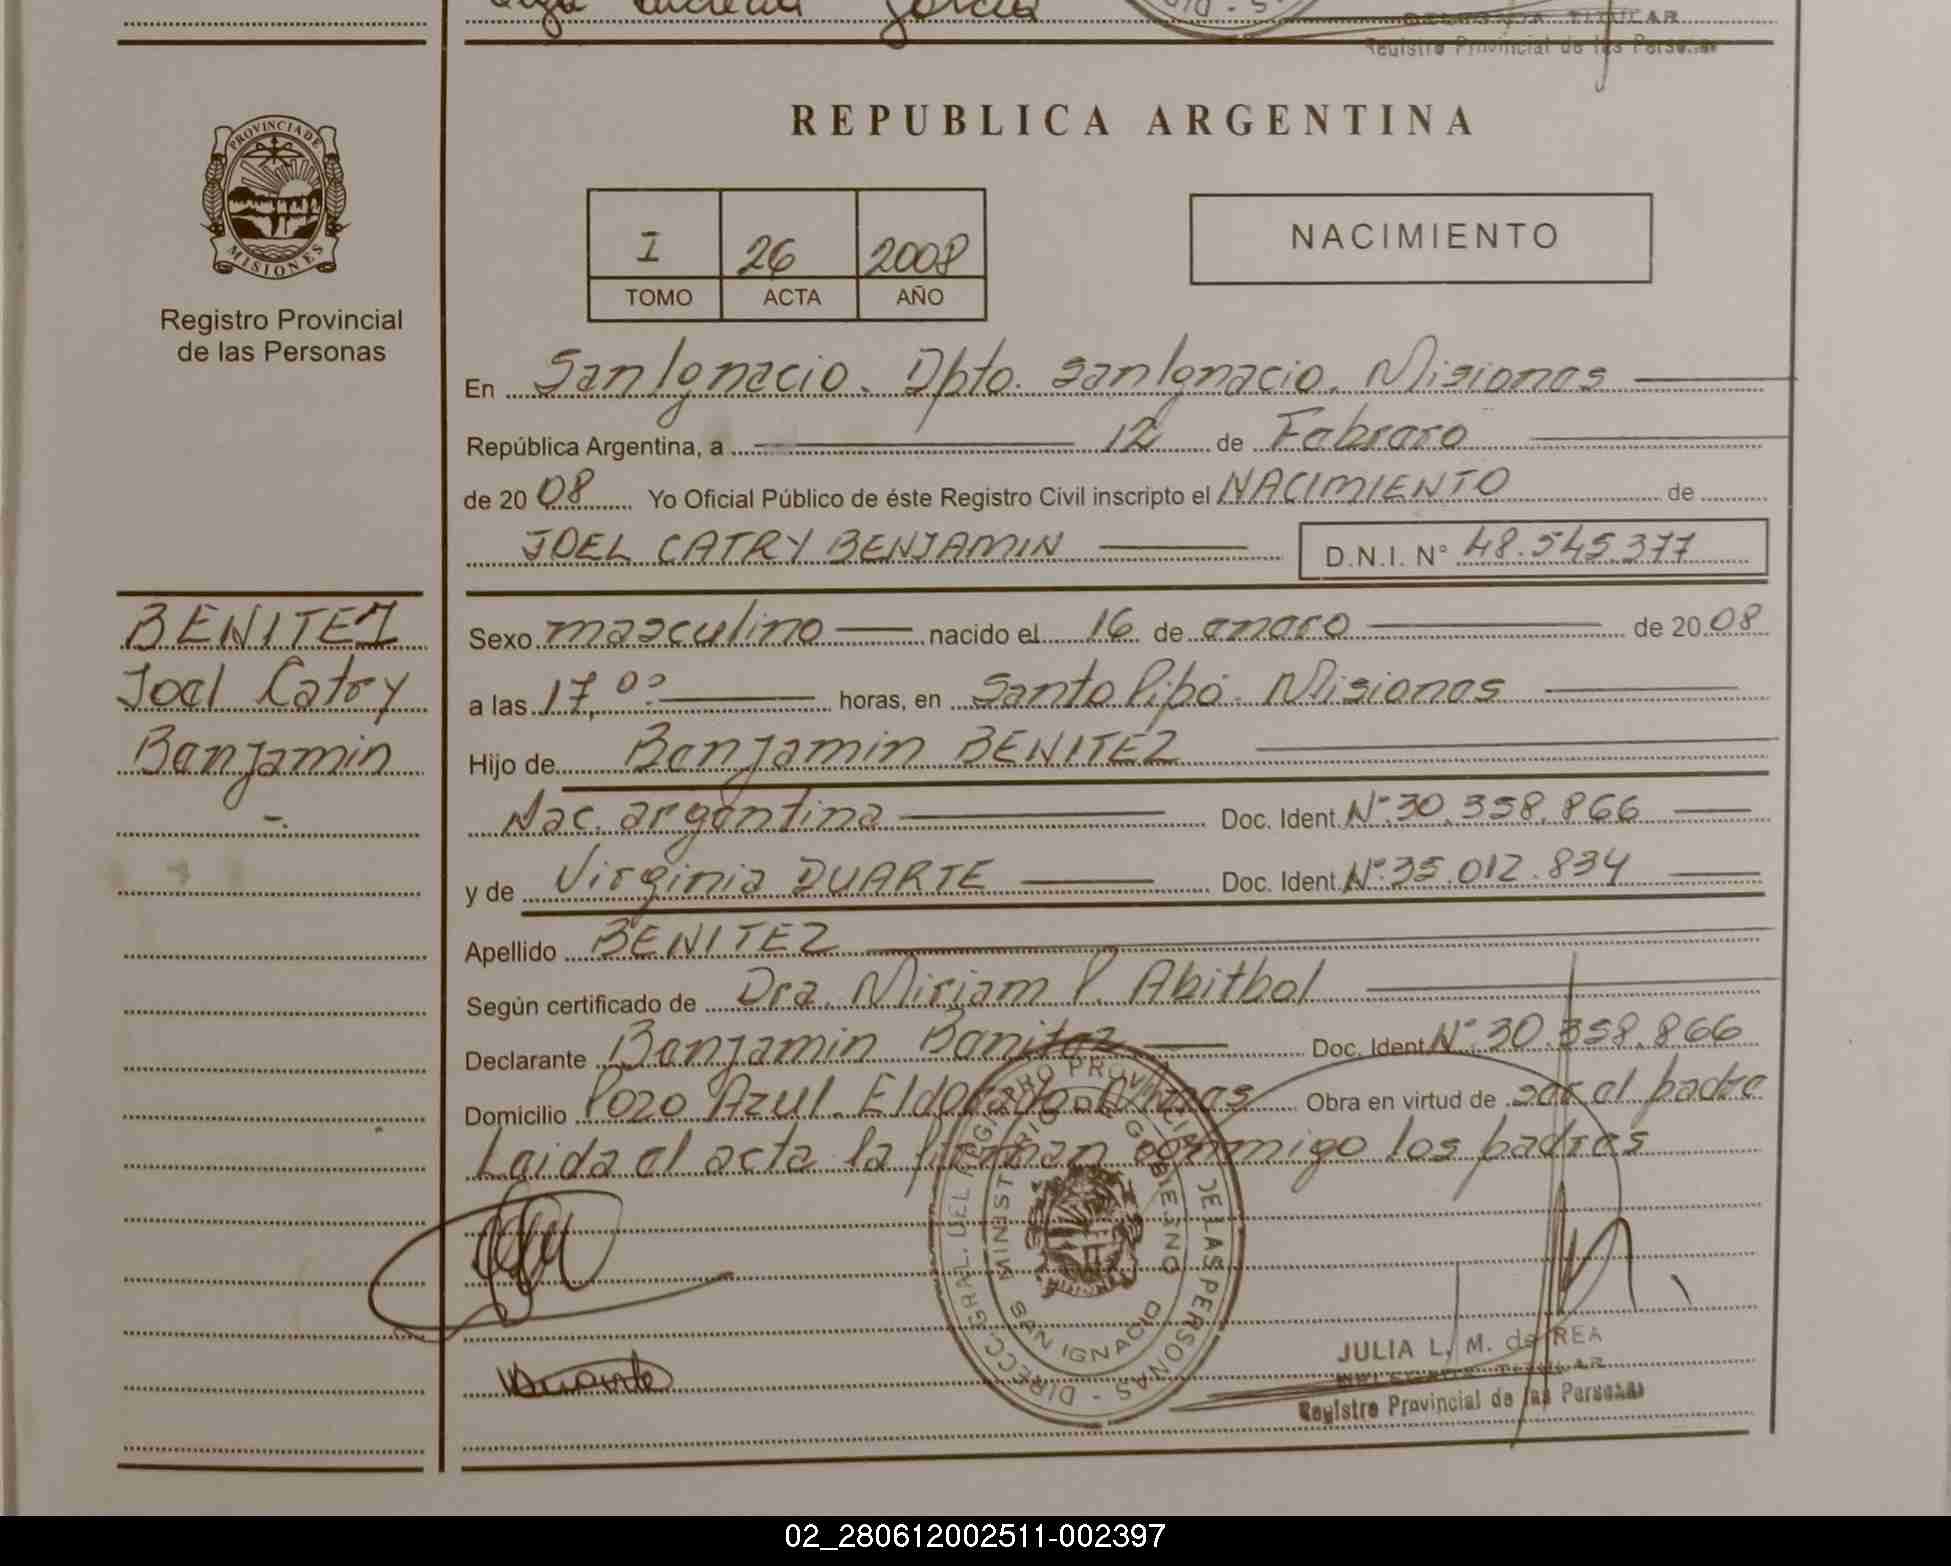 García
TITULAR
Registro Provincial de las Personas
PROVINCIA DE
MISIONES
Registro Provincial
de las Personas
REPUBLICA ARGENTINA
I 26 2008
TOMO ACTA AÑO
NACIMIENTO
En San Ignacio. Dpto. San Ignacio. Misiones
República Argentina, a 12 de Febrero
de 2008 Yo Oficial Público de éste Registro Civil inscripto el NACIMIENTO de
JOEL CATRY BENJAMIN D.N.I. N° 48.545.377
BENITEZ
Joel Catry
Benjamin
-.
Sexo masculino nacido el 16 de enero de 2008
a las 17,00 horas, en Santo Pipó. Misiones
Hijo de Benjamin BENITEZ
Nac. argentina Doc. Ident. N°:30.358.866
y de Virginia DUARTE Doc. Ident. N°:35.012.834
Apellido BENITEZ
Según certificado de Dra. Miriam P. Abitbol
Declarante Benjamin Benitez Doc. Ident. N°:30.358.866
Domicilio Pozo Azul. Eldorado. Mnes Obra en virtud de ser el padre
Leida el acta la firman conmigo los padres
DIRECC. GRAL. DEL REGISTRO PROVINCIAL DE LAS PERSONAS -
MINISTERIO DE GOBIERNO
SAN IGNACIO
Duarte
JULIA L. M. de REA
DELEGADA TITULAR
Registro Provincial de las Personas
02_280612002511-002397